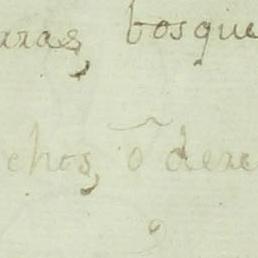 aras, bosque
chos, õ dere